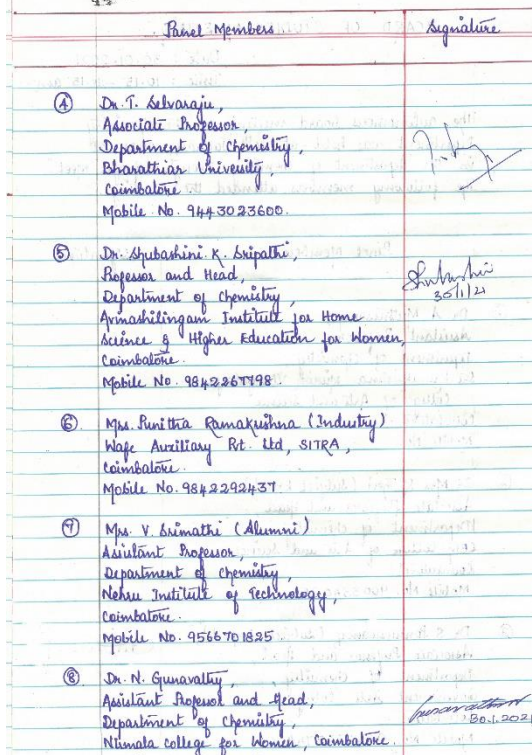 Panel Members Signature
④ Dr. T. Selvaraju,
Associate Professor,
Department of Chemistry,
Bharathiar University,
Coimbatore.
Mobile No. 9443023600.
⑤ Dr. Shubashini. K. Sripathi,
Professor and Head,
Department of Chemistry,
Avinashilingam Institute for Home
Science & Higher Education for Women,
Coimbatore.
Mobile No. 9842267798.
Shubashini
30/1/21
⑥ Mrs. Punittra Ramakrishna (Industry)
Wafe Auxiliary Pvt. Ltd, SITRA,
Coimbatore.
Mobile No. 9842292437.
⑦ Mrs. V. Srimathi (Alumni)
Assistant Professor,
Department of Chemistry,
Nehru Institute of Technology,
Coimbatore.
Mobile No. 9566701825
⑧ Dr. N. Gunavathy,
Assistant Professor and Head,
Department of Chemistry,
Nirmala College for Women, Coimbatore.
30.1.202